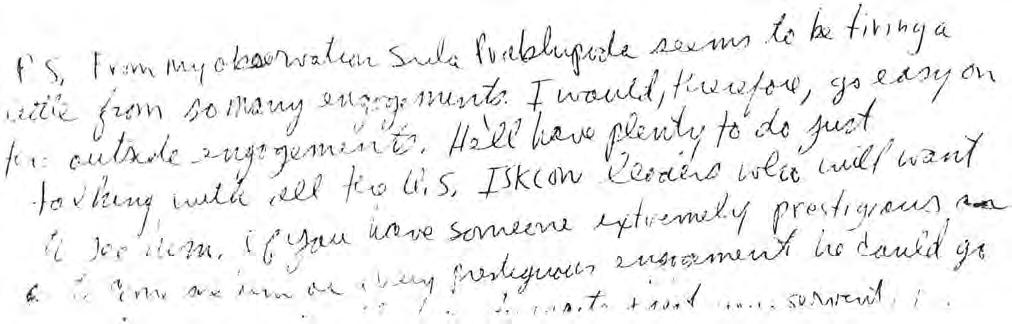 P.S. From my observation Srila Prabhupada seems to be tiring a
little from so many engagements. I would, therefore, go easy on
the outside engagements. He'll have plenty to do just
talking with all the U.S. ISKCON leaders who will want
to see him. If you have someone extremely prestigious
to come see him or a very prestiguous engagement he could go
servent